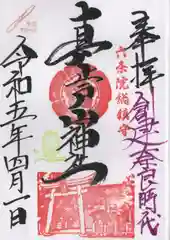 奉拝
創建奈良時代
六条院総鎮守
真止戸山神社
令和五年四月一日